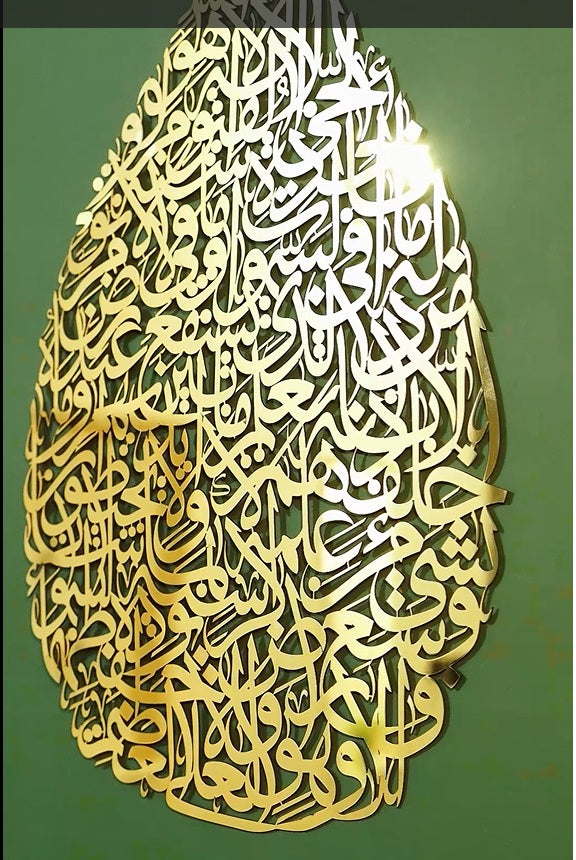 الله لا إله إلا هو
الحي القيوم لا
تأخذه سنة ولا نوم
له ما في السموات وما في
الأرض من ذا الذي يشفع عنده
إلا بإذنه يعلم ما بين أيديهم وما
خلفهم ولا يحيطون
بشيء من علمه إلا بما شاء
وسع كرسيه السموات
والأرض ولا يؤده حفظهما
وهو العلي العظيم